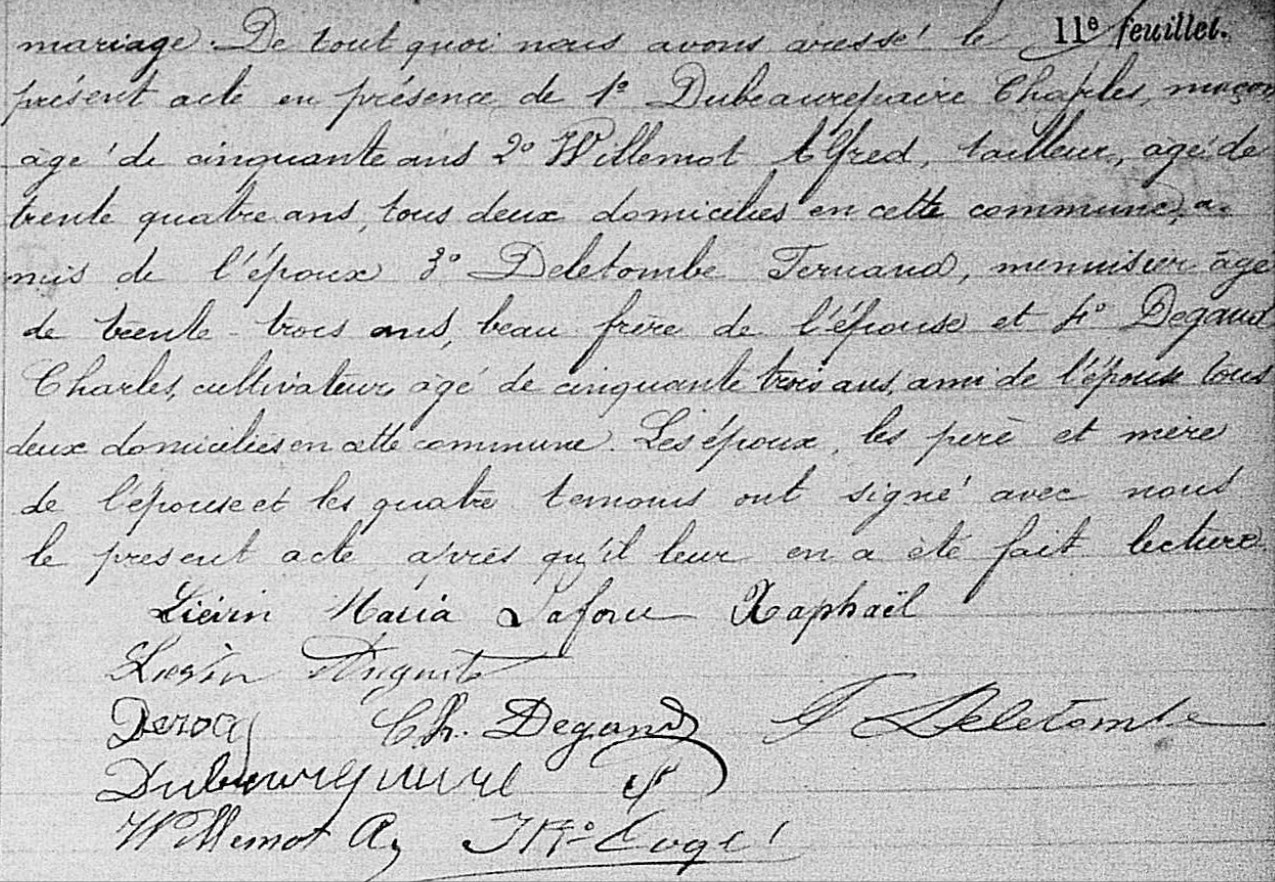 11e feuillet.
mariage. De tout quoi nous avons dressé le
présent acte en présence de 1° Dubeaurepaire Charles, maçon
âgé de cinquante ans 2° Willemot Alfred, tailleur, âgé de
trente quatre ans, tous deux domiciliés en cette commune, a-
mis de l'époux 3° Deletombe Fernand, menuisier âgé
de trente-trois ans, beau frère de l'épouse et 4° Degand
Charles, cultivateur âgé de cinquante trois ans, ami de l'épouse tous
deux domiciliés en cette commune. Les époux, les père et mère
de l'épouse et les quatre temoins ont signé avec nous
le present acte après qu'il leur en a été fait lecture.
Liévin Maria Lafou Raphaël
Liévin Auguste
Deroy Ch. Degand F Deletombe
Dubeaurepaire
Willemot A,